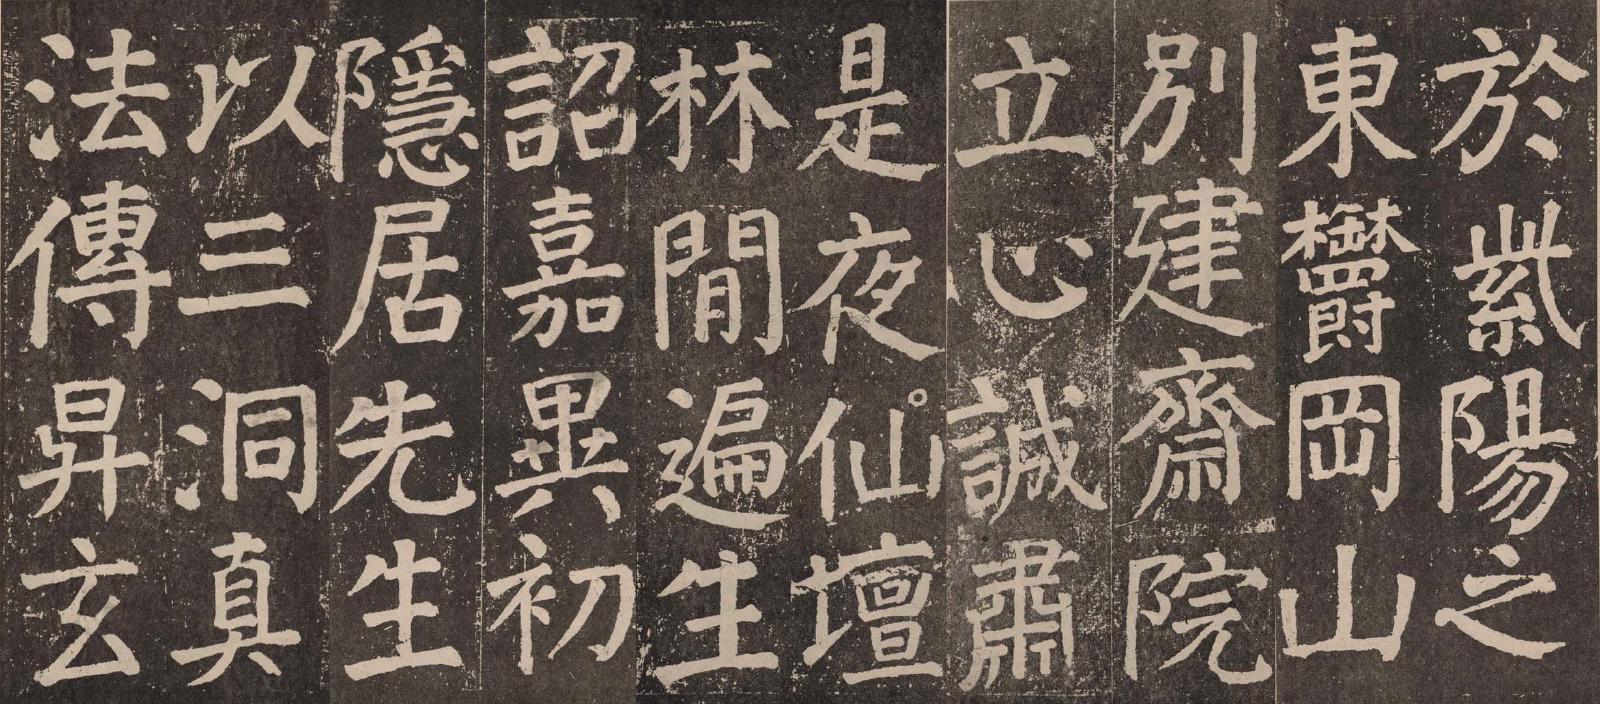 於紫陽之
東欝岡山
別建齋院
立心誠肅
是夜仙壇
林間遍生
詔嘉異初
隱居先生
以三洞真
法傳昇玄